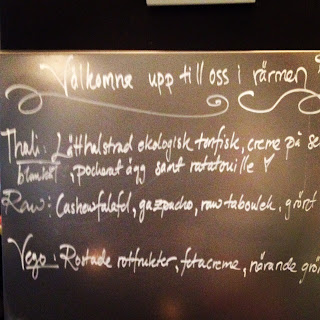 Välkomna upp till oss i värmen
Thali: Lätthalstrad ekologisk tonfisk, creme på se
pocherat ägg samt ratatouille
Raw: Cashewfalafel, gazpacho, raw tabouleh, grönt
Vego: Rostade rotfrukter, fetacreme, närande grön